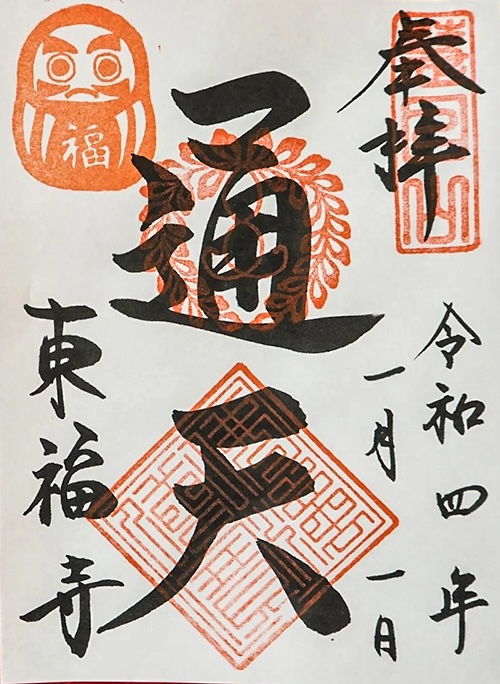 奉拝
令和四年
一月一日
通天
東福寺
福